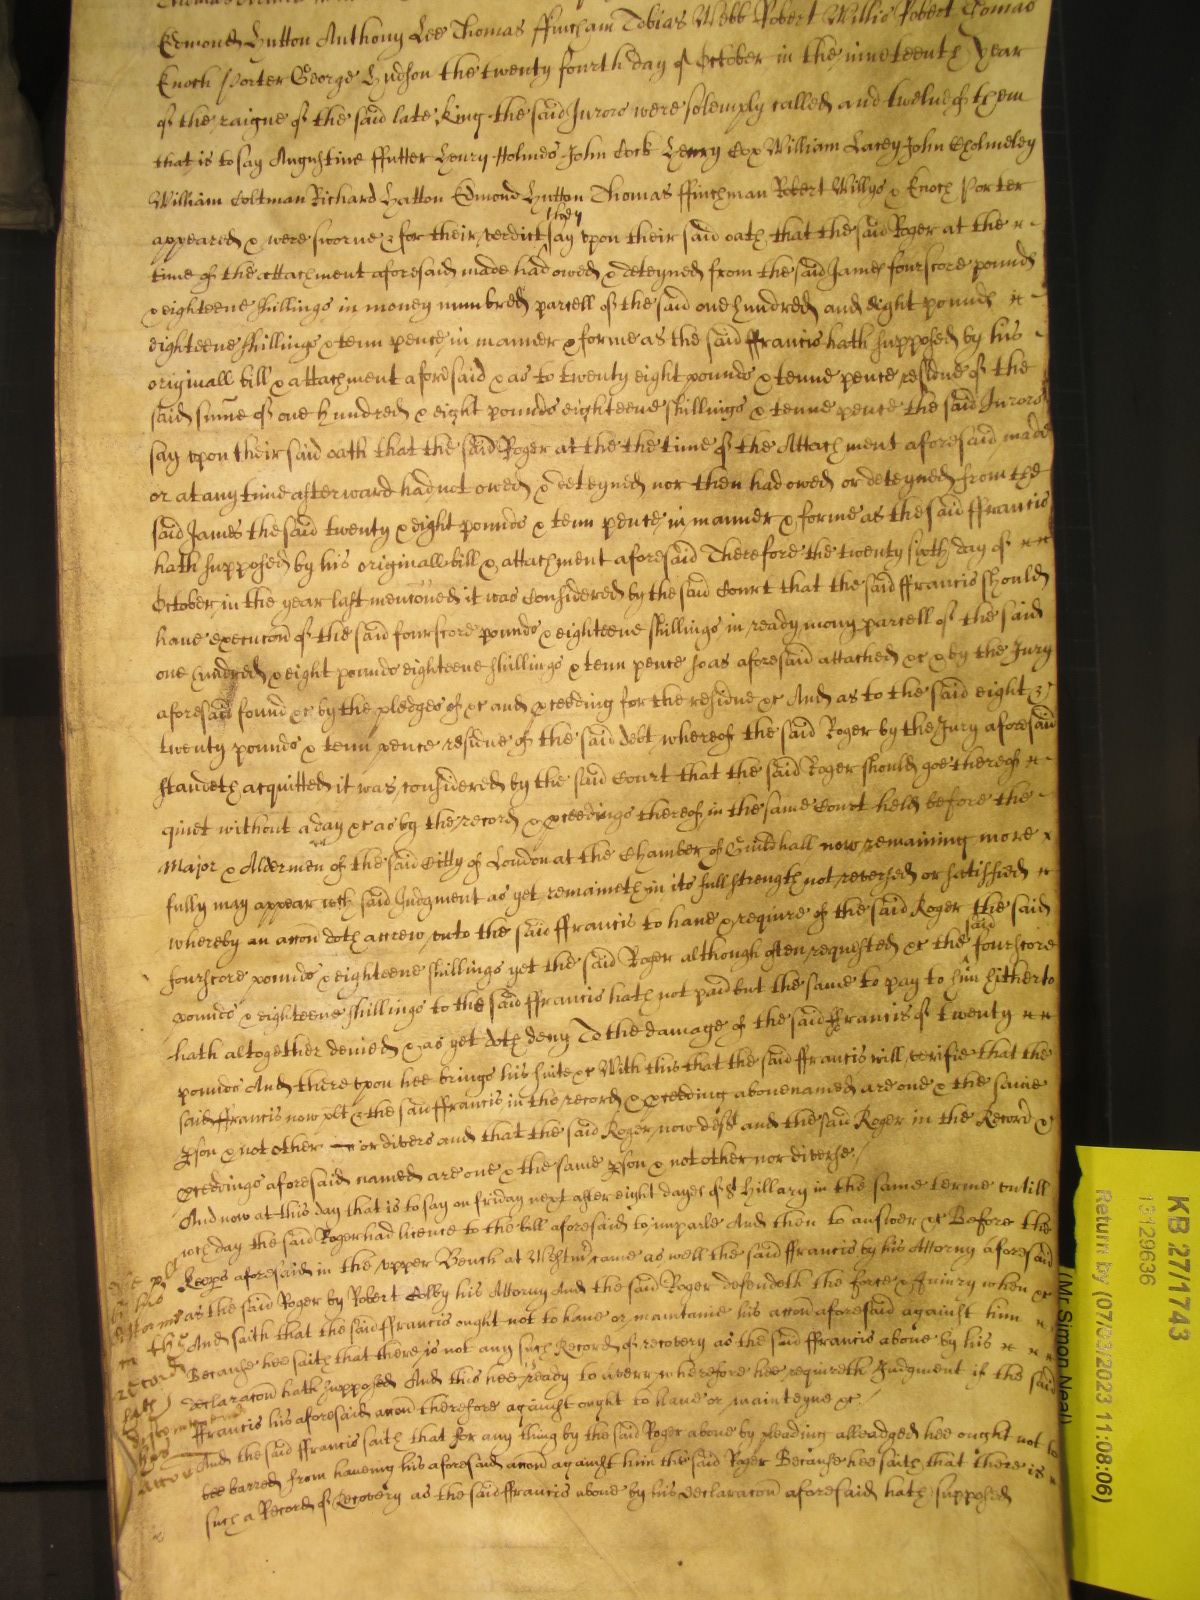 Edmond Hutton Anthony Lee Thomas ffincham Tobias Webb Robert Willis Robert Thomas
Enoch Porter George Hudson the twenty fourth day of October in the nineteenth year
of the raigne of the said late King the said Jurors were solemply called and twelve of them
that is to say Augustine ffutter Henry Holmds John Cock Henry Cox William Lacey John Cholmeley
William Coltman Richard Hatton Edmond Hutton Thomas ffinchman Robert Willys & Enoch Porter
they
appeared & were sworne & for their verdict say upon their said oath that the said Roger at the
time of the attachment aforesaid made had owed & deteyned from the said James fourscore pounds
& eighteene shillings in money numbred parcell of the said one hundred and eight pounds
eighteene shillings & tenn pence in manner & forme as the said ffrancis hath supposed by his
originall bill & attachment aforesaid & as to twenty eight pounds & tenne pence residue of the
said summe of one hundred & eight pounds eighteene shillings & tenne pence the said Jurors
say upon their said oath that the said Roger at the the time of the Attachment aforesaid made
or at any time afterward had not owed & deteyned nor then had owed or deteyned from the
said James the said twenty & eight pounds & tenn pence in manner & forme as the said ffrancis
hath supposed by his originall bill & attachment aforesaid Therefore the twenty sixth day of
October in the year last menconed it was Considered by the said Court that the said ffrancis should
have execucon of the said fourscore pounds & eighteene shillings in ready mony parcell of the said
one hundred & eight pounds eighteene shillings & tenn pence so as aforesaid attached &c & by the Jury
aforesaid found &c by the pledges of &c and pceeding for the residue &c And as to the said eight &
twenty pounds & tenn pence residue of the said debt whereof the said Roger by the Jury aforesaid
standeth acquitted it was considered by the said Court that the said Roger should goe thereof
quiet without a day &c as by the record & pceedings thereof in the same Court held before the
Major & Aldermen of the said Citty of London at the Chamber of Guildhall now remaining more
fully may appear wch said Judgment as yet remaineth in its full strength not reversed or satisfied
whereby an accon doth accrew unto the said ffrancis to have & require of the said Roger the said
said
fourscore pounds & eighteene shillings yet the said Roger although often requested &c the fourscore
pounds & eighteene shillings to the said ffrancis hath not paid but the same to pay to him hitherto
hath altogether denied & as yet doth deny To the damage of the said ffrancis of twenty
pounds And thereupon hee brings his suite &c With this that the said ffrancis will verifie that the
said ffrancis now plt & the said ffrancis in the record & pceeding abovenamed are one & the same
pson & not other or divers and that the said Roger now deft and the said Roger in the Record &
pceedings aforesaid named are one & the same pson & not other nor diverse
And now at this day that is to say on friday next after eight dayes of St Hillary in the same terme untill
wch day the said Roger had licence to the bill aforesaid to imparle And then to answer &c Before the
Keeps aforesaid in the upper Bench at Westmr came as well the said ffrancis by his Attorny aforesaid
as the said Roger by Robert Colby his Attorny And the said Roger defendeth the force & iniury when &c
And saith that the said ffrancis ought not to have or maintaine his accon aforesaid against him
Because hee saith that there is not any such Record of recovery as the said ffrancis above by his
declaracon hath supposed And this hee is ready to averr wherefore hee requireth Judgment if the said
ffrancis his aforesaid accon therefore against ought to have or mainteyne &c
And the said ffrancis saith that for any thing by the said Roger above by pleading alleadged hee ought not to
bee barred from haveing his aforesaid accon against him the said Roger Because hee saith that there is
such a Record of Recovery as the said ffrancis above by his Declaracon aforesaid hath supposed
by his
in the
record
KB 27/1743
13129636
Return by (07/03/2023 11:08:06)
(Mr Simon Neal)